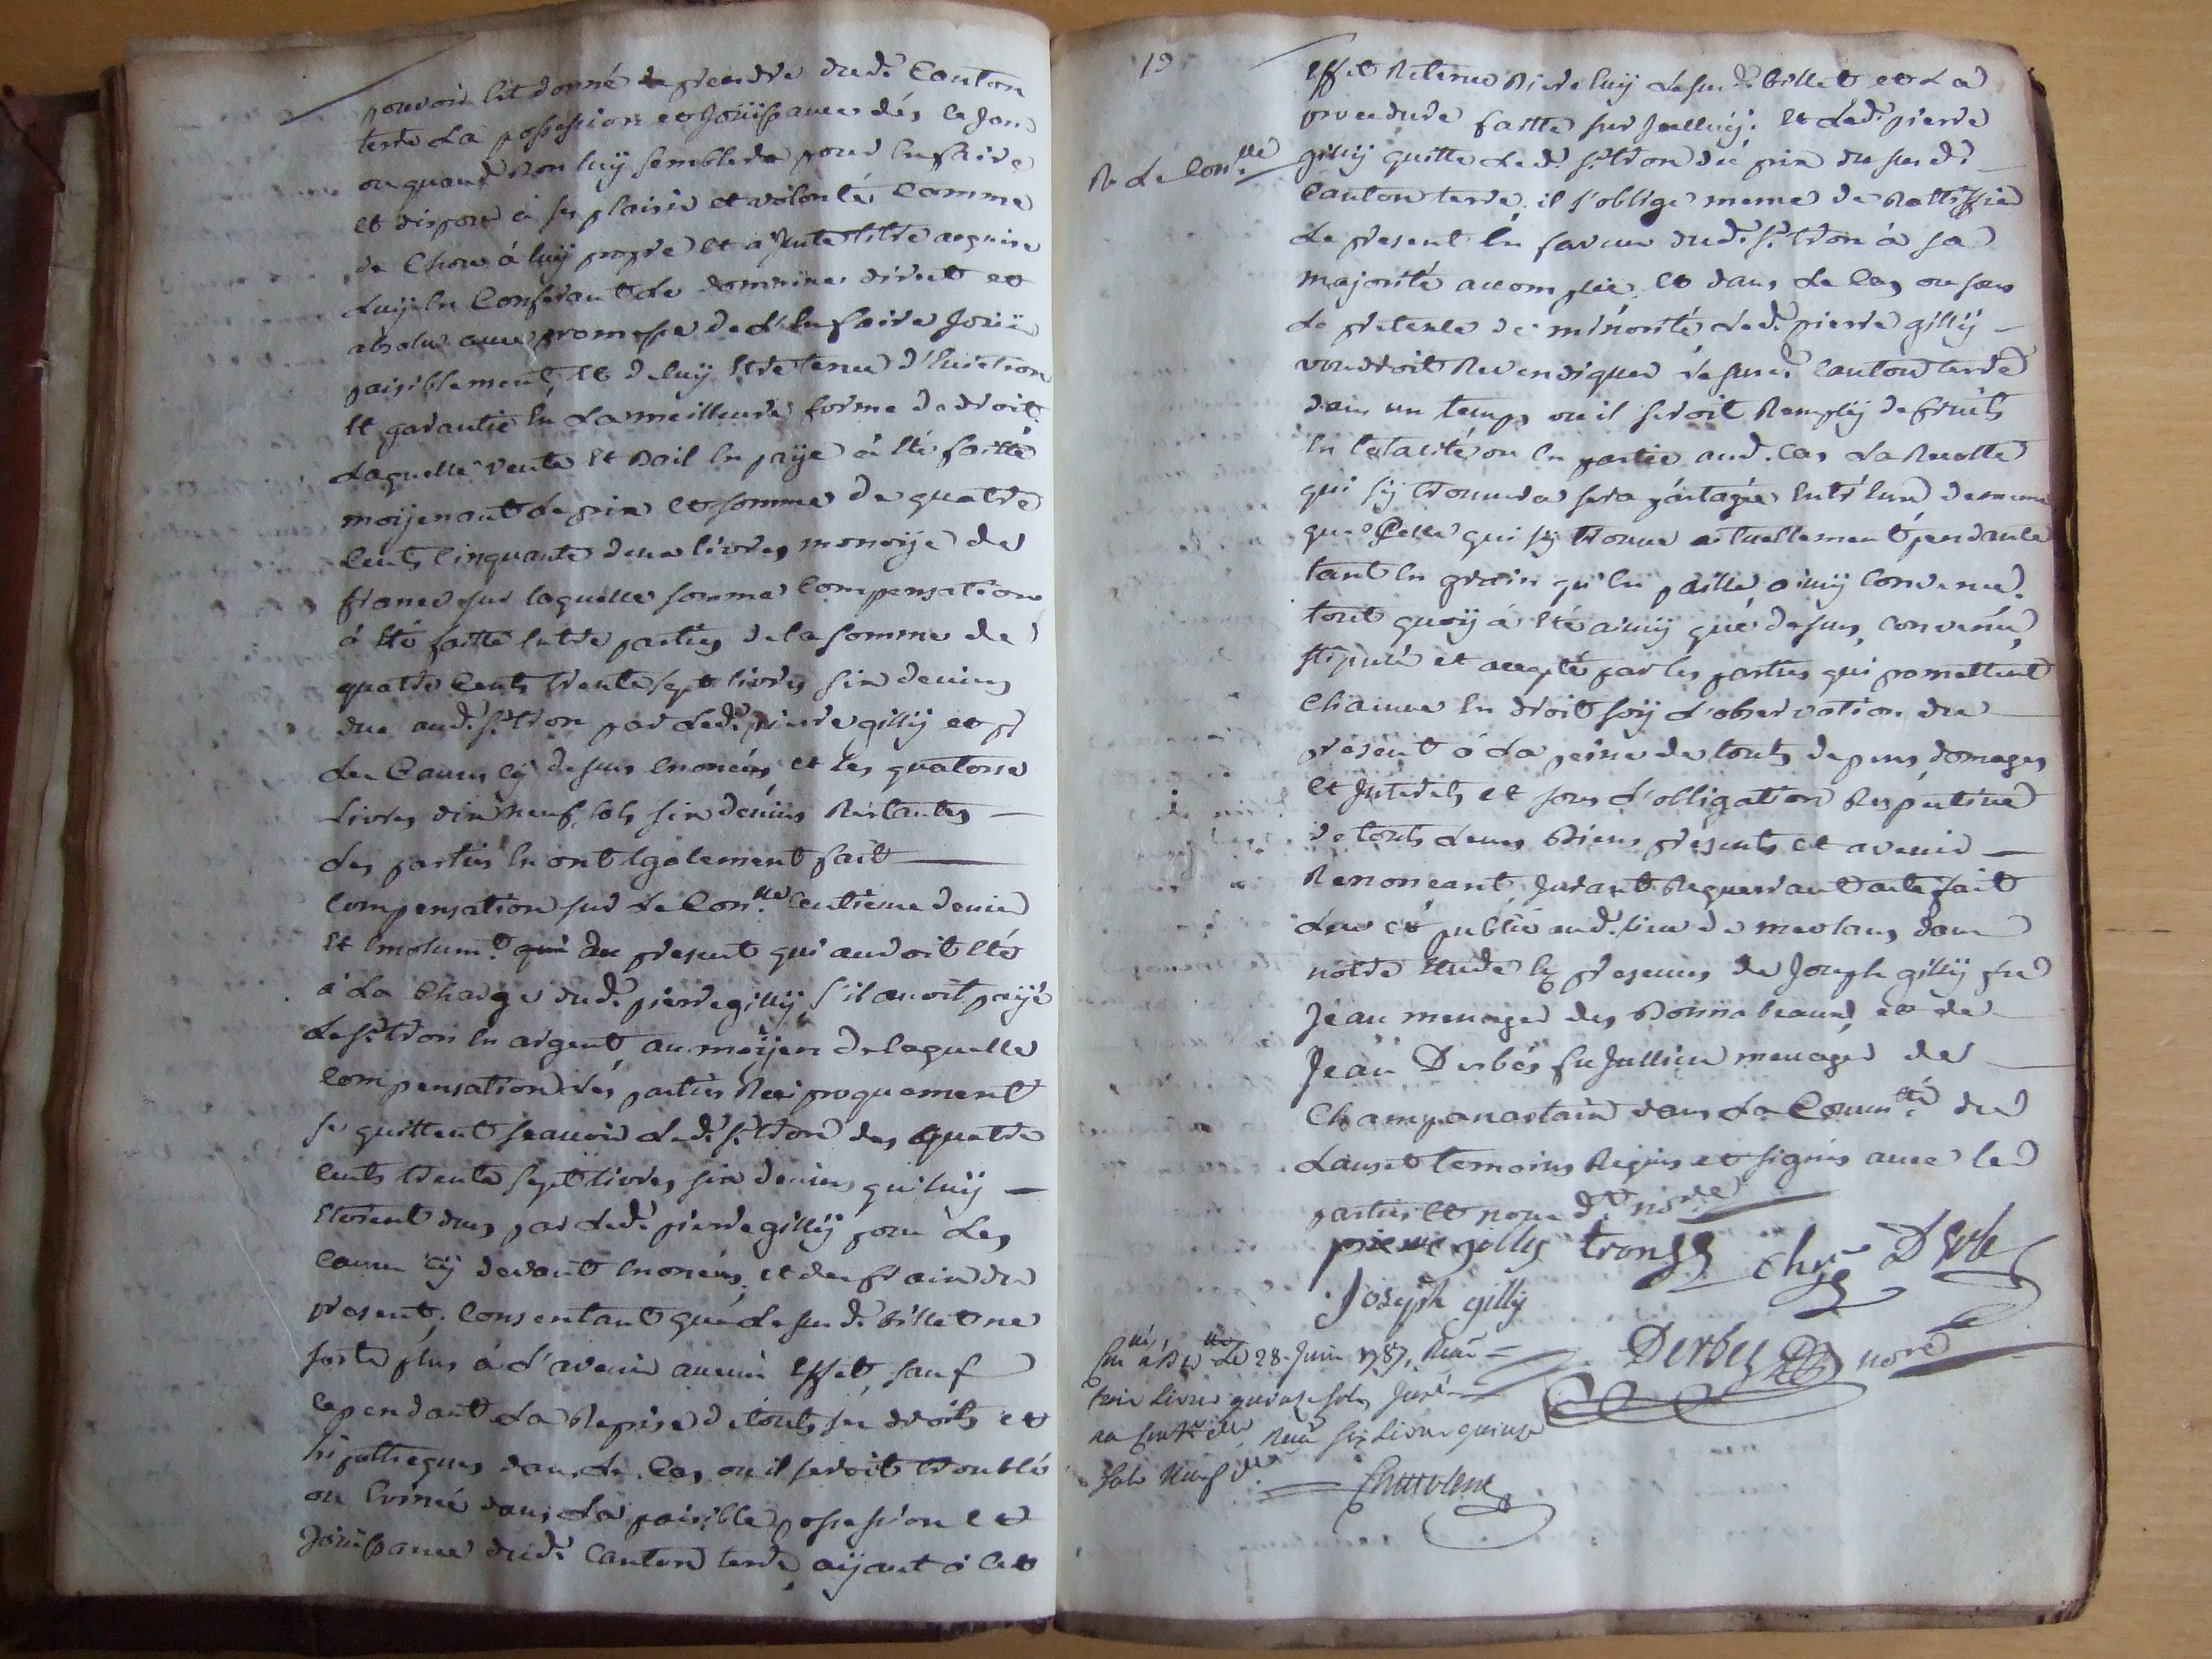 pouvoir et donné de prendre dud. Canton
terre La possession et Jouissance dés ce Jour
ou quand Bon luy semblera pour en faire
et disposer à ses plaisir et volonté Comme
de Chose á luy propre et a Juste titre acquise
Luy en Conferant Le domaine direct et
absolu avec promesse de L'en faire Jouir
paisiblement, et de luy etre tenu d'Eviction
et garantie En La meilleure forme de droit
Laquelle vente et Bail En paÿe á été faitte
moÿenant Le prix et somme de quatre
Cents Cinquante deux livres monoÿe de
france sur laquelle somme Compensation
á été faitte Entre parties de la somme de
quatre Cents trente sept livres six deniers
due aud. Sr. tron par Led. pierre gilly et pr
Les Causes cÿ dessus Enoncées et Les quatorse
Livres dix neuf sols six déniers Restantes
Les parties En ont Egalement fait
Compensation sur Le Conlle. Centieme denier
et Emolumt. du present qui auroit été
á La Charge dud. pierre gilly s'il avoit paÿé
Le Sr. tron En argent, au moÿen de laquelle
Compensation Les parties Reciproquement
se quittent scavoir Led. Sr. tron des quatre
cents trente sept livres six deniers qui luy
Etoient dues par Led. pierre gilly pour Les
Causes cÿ devant Enoncées, et des frais du
present, Consentant que Le sud. billet ne
sorte plus á L'avenir aucun Effet, sauf
cependant La Reprise de touts ses droits et
hipotheques dans Le Cas ou il seroit troublé
ou Evincé dans La paisible possession et
Jouissance dud. Canton terre, aÿant á Cet
19
Effet Retenu Riere luy Le sud. billet et La
procedure faitte sur Icelluy. Et Led. pierre
R. Le Conlle.
gilly quitte Led. Sr. tron du prix du susd.
Canton terre. il s'oblige meme de Rattiffier
Le present En faveur dud. Sr. tron á sa
majorité accomplie. Et dans Le Cas ou sous
Le pretexte de minorité Led. pierre gilly
voudroit Revendiquer Le susd. Canton terre
dans un temps ou il seroit Remply de fruits
En totalité ou En partie aud. Cas La Recolte
qui sÿ trouvera sera partagée Entr'Eux de meme
que Celle qui sÿ trouve actuellement pendante
tant En grain qu'En paille ainsÿ Convenu.
tout quoÿ á été ainsÿ que dessus, convenu,
stipulé et accepté par les parties qui promettent
Chacune En droit soÿ L'observation du
present á La peine de touts depens, domages
et Interets et sous L'obligation Respective
de touts Leurs Biens présents et avenir
Renonceant, Jurant Requerant acte fait
Leu et publié aud. lieu de meolans dans
notre Etude Ez presences de Joseph gilly feu
Jean menager des Bonnabeaux, et de
Jean Derbés feu Jullien menager de
Champanastais dans La Commté. du
Lauzet temoins Requis et signés avec les
parties et nous dt. nore
pierre gilly tron
Joseph gilly
Derbes nore
28 Juin 1787, Reçu
trois Livres quinze sols
Reçu six Livres quinze
sols Neuf drs.